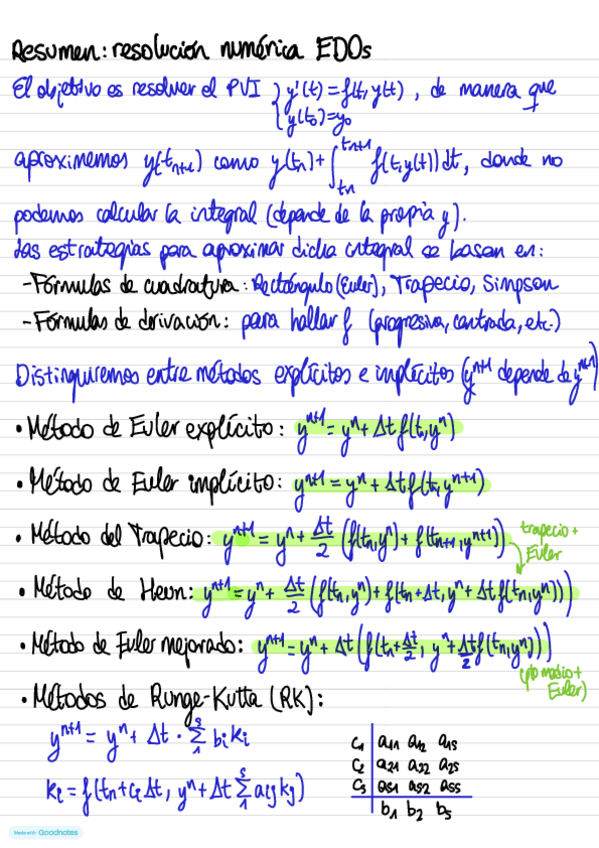 Resumen: resolución numérica EDOs
El objetivo es resolver el PVI { y'(t) = f(t, y(t)) , de manera que
y(t₀)=y₀
aproximemos y(tₙ₊₁) como y(tₙ) + ∫ₜₙᵗⁿ⁺¹ f(t, y(t)) dt, donde no
podemos calcular la integral (depende de la propia y).
Las estrategias para aproximar dicha integral se basan en:
- Fórmulas de cuadratura: Rectángulo (Euler), Trapecio, Simpson
- Fórmulas de derivación: para hallar f (progresiva, centrada, etc.)
Distinguiremos entre métodos explícitos e implícitos (yⁿ⁺¹ depende de yⁿ⁺¹)
• Método de Euler explícito: yⁿ⁺¹ = yⁿ + Δt f(tₙ, yⁿ)
• Método de Euler implícito: yⁿ⁺¹ = yⁿ + Δt f(tₙ, yⁿ⁺¹)
• Método del Trapecio: yⁿ⁺¹ = yⁿ + Δt/2 (f(tₙ, yⁿ) + f(tₙ₊₁, yⁿ⁺¹))
trapecio +
Euler
• Método de Heun: yⁿ⁺¹ = yⁿ + Δt/2 (f(tₙ, yⁿ) + f(tₙ+Δt, yⁿ + Δt f(tₙ, yⁿ)))
• Método de Euler mejorado: yⁿ⁺¹ = yⁿ + Δt (f(tₙ + Δt/2, yⁿ + Δt/2 f(tₙ, yⁿ)))
(pto medio +
Euler)
• Métodos de Runge-Kutta (RK):
yⁿ⁺¹ = yⁿ + Δt · Σ₁ˢ bᵢ kᵢ
kᵢ = f(tₙ + cᵢ Δt, yⁿ + Δt Σ₁ˢ aᵢⱼ kⱼ)
c₁ | a₁₁ a₁₂ a₁ₛ
c₂ | a₂₁ a₂₂ a₂ₛ
cₛ | aₛ₁ aₛ₂ aₛₛ
b₁ b₂ bₛ
Made with Goodnotes